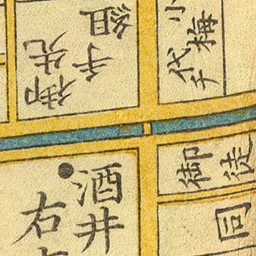 御徒
手組
小梅
代チ
御徒
同
酒井
右